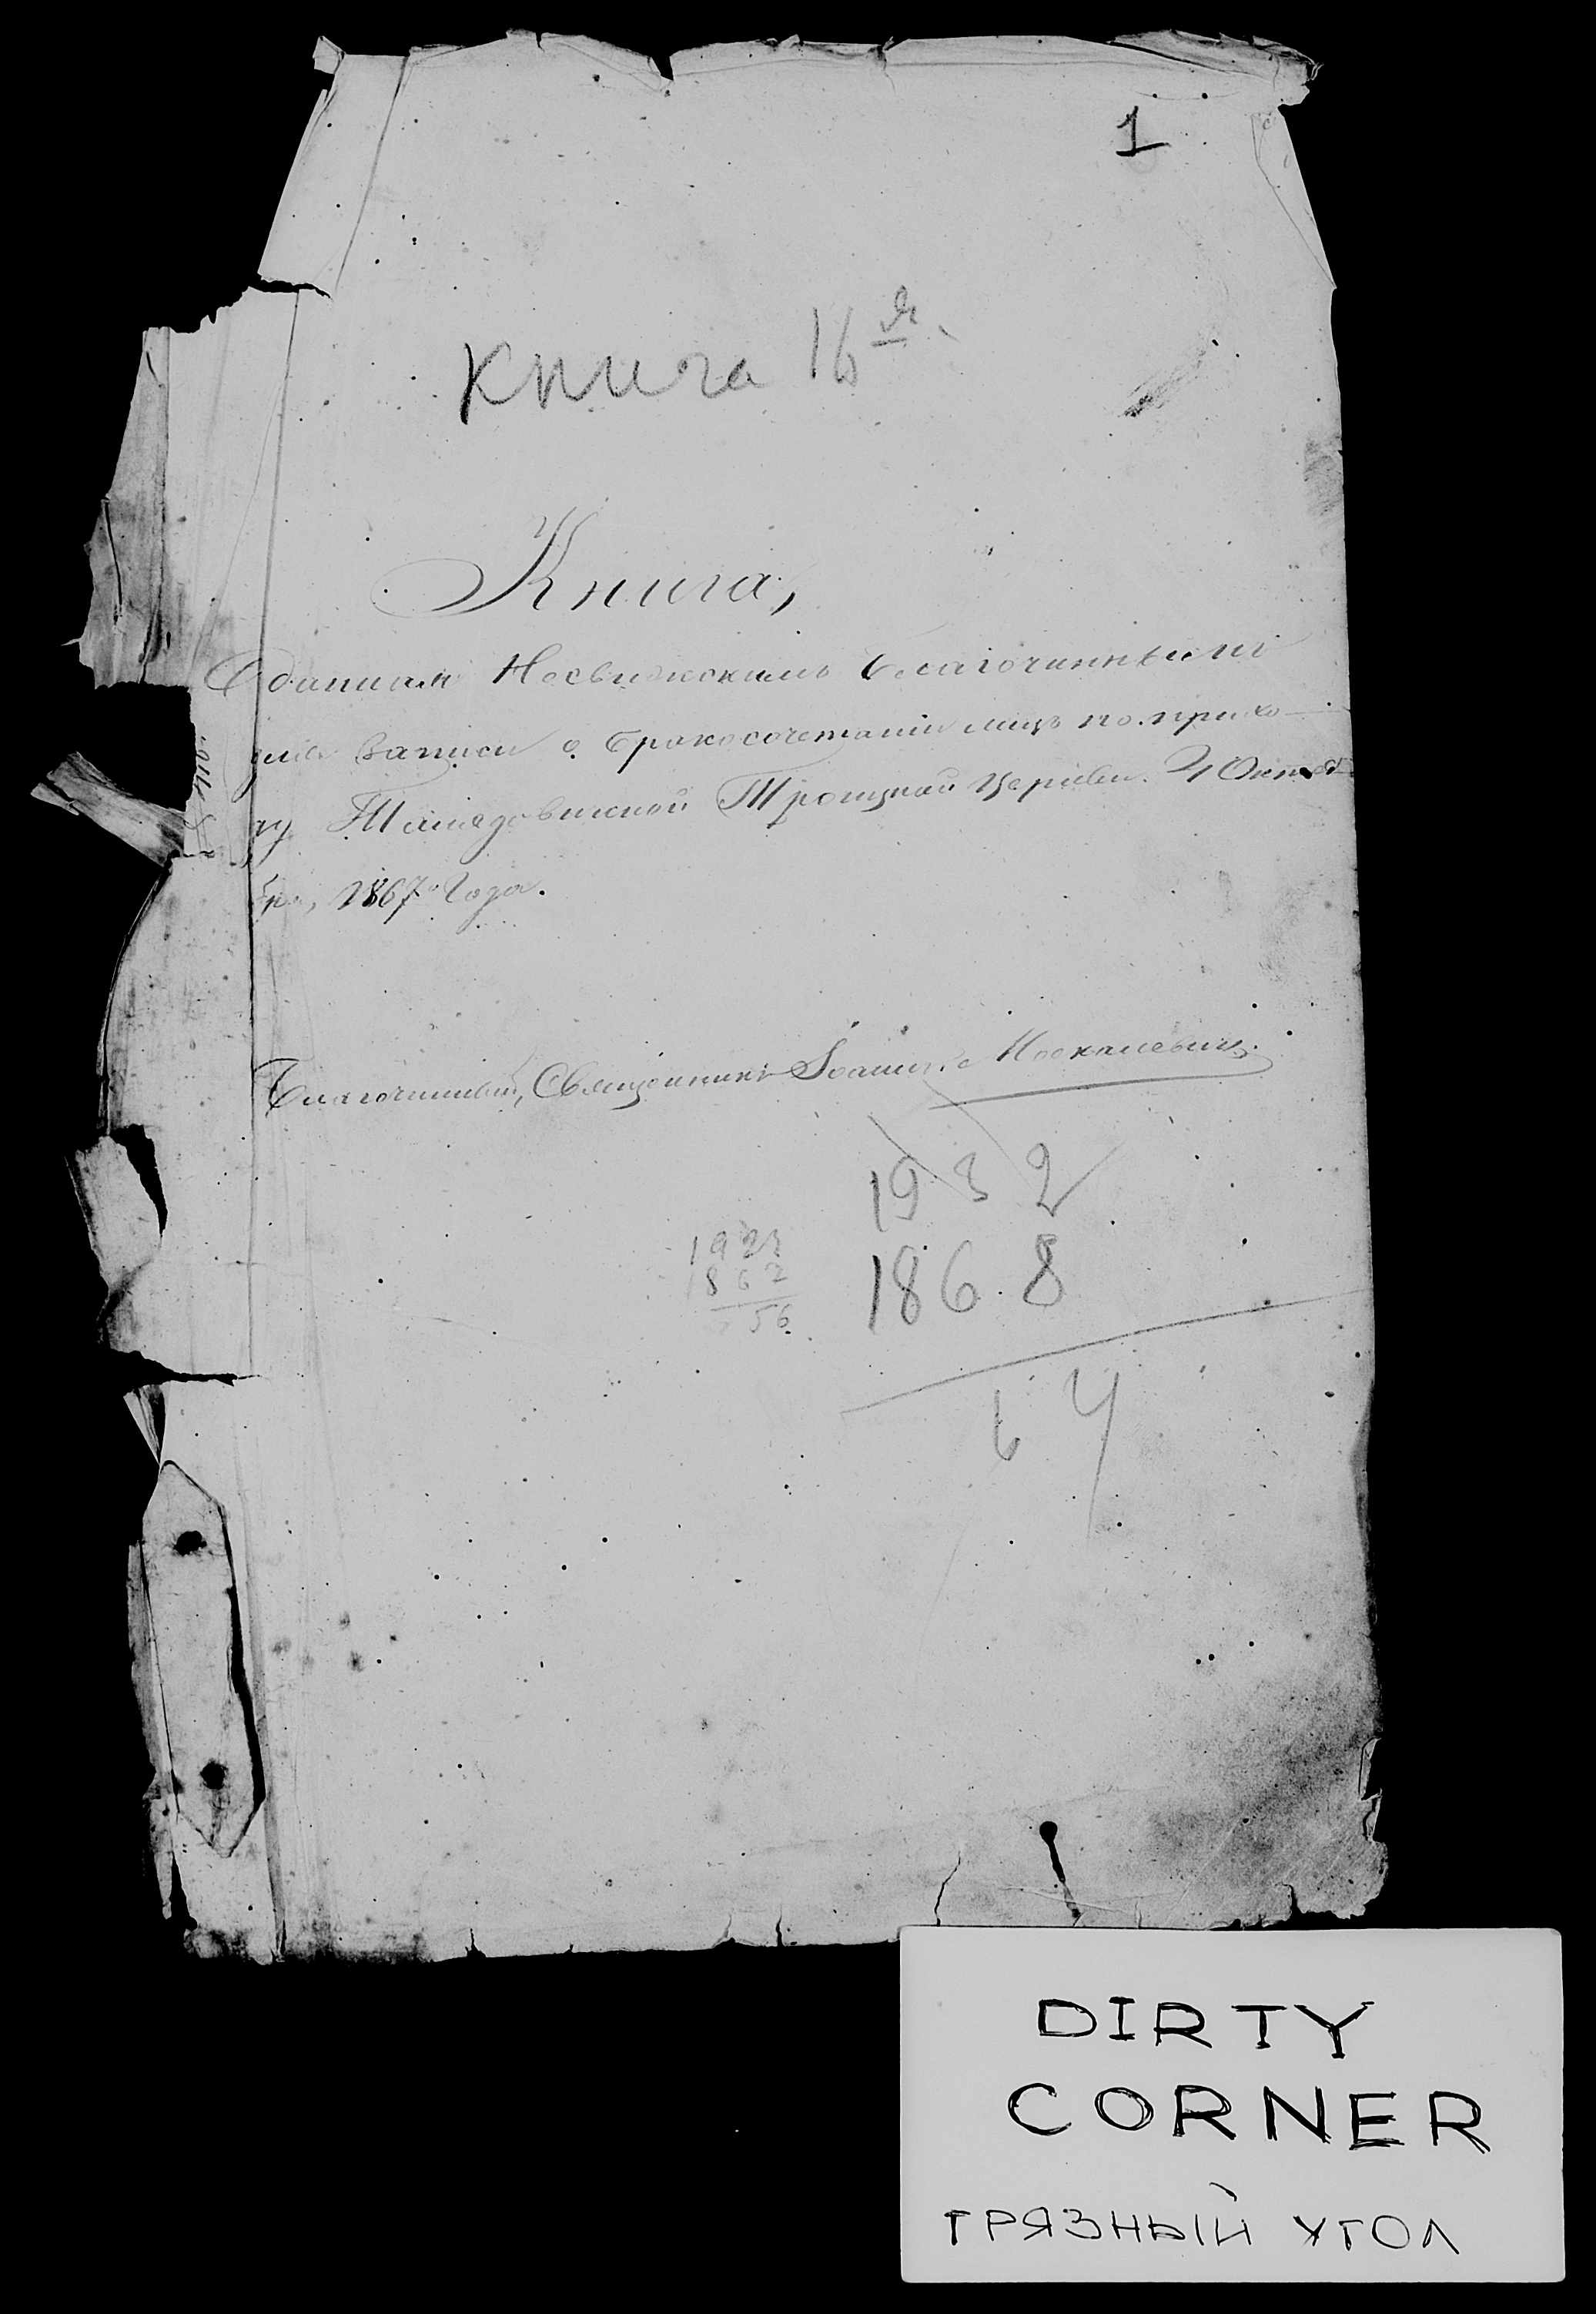 1
Книга 16я
Книга,
Несвижскимъ благочиннымъ
для записи о бракосочетаніи лицъ по прихо-
ду Троицкой Церкви. Октя-
бря, 1867 Года.
Благочинный, Священникъ Іоаннъ
1932
1868
64
1923
1867
56
DIRTY
CORNER
ГРЯЗНЫЙ УГОЛ